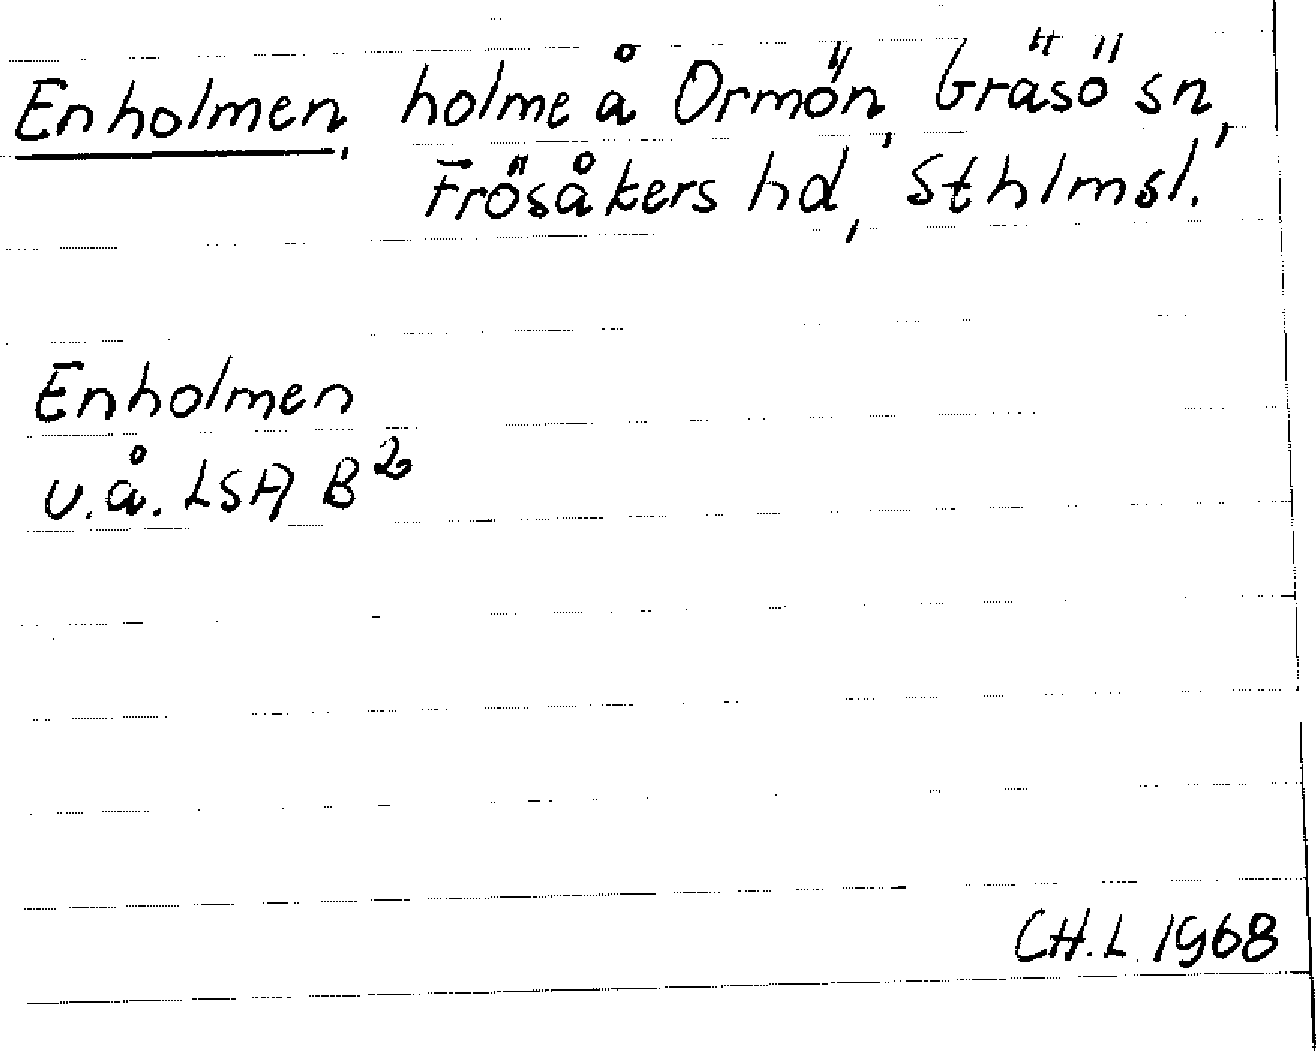 Enholmen, holme å Ormön, Gräsö sn,
Frösåkers hd, Sthlmsl.
Enholmen
u.å. LSA B²
CH.L. 1968